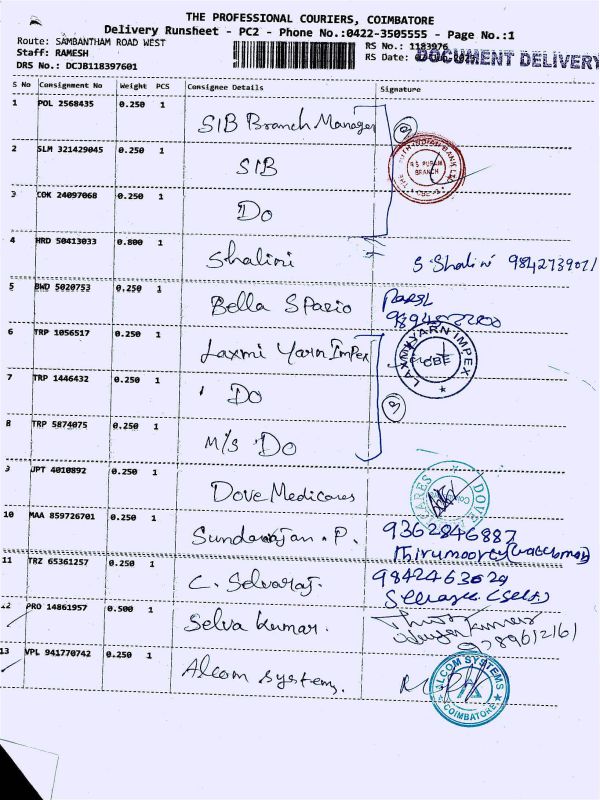 THE PROFESSIONAL COURIERS, COIMBATORE
Delivery Runsheet - PC2 - Phone No.:0422-3505555 - Page No.:1
Route: SAMBANTHAM ROAD WEST
RS No.: 1183976
Staff: RAMESH
RS Date:
DOCUMENT DELIVERY
DRS No.: DCJB118397601
S No Consignment No Weight PCS Consignee Details Signature
1 POL 2568435 0.250 1 SIB Branch Manager
2 SLM 321429045 0.250 1 SIB
R S PURAM
BRANCH
3 COK 24097068 0.250 1 Do
4 HRD 50413033 0.800 1 Shalini S Shalini
5 BWD 5020753 0.250 1 Bella Spazio
6 TRP 1056517 0.250 1 Laxmi Yarn Impex
LAXMI YARN IMPEX
CBE
7 TRP 1446432 0.250 1 Do
8 TRP 5874075 0.250 1 M/S Do
9 JPT 4010892 0.250 1 Dove Medicares
DOVE
10 MAA 859726701 0.250 1 Sundarajan . P. 9362846887
11 TRZ 65361257 0.250 1 C. Selvaraj. 9842463629
12 PRO 14861957 0.500 1 Selva Kumar.
13 VPL 941770742 0.250 1 Alcom Systems.
ALCOM SYSTEMS
COIMBATORE